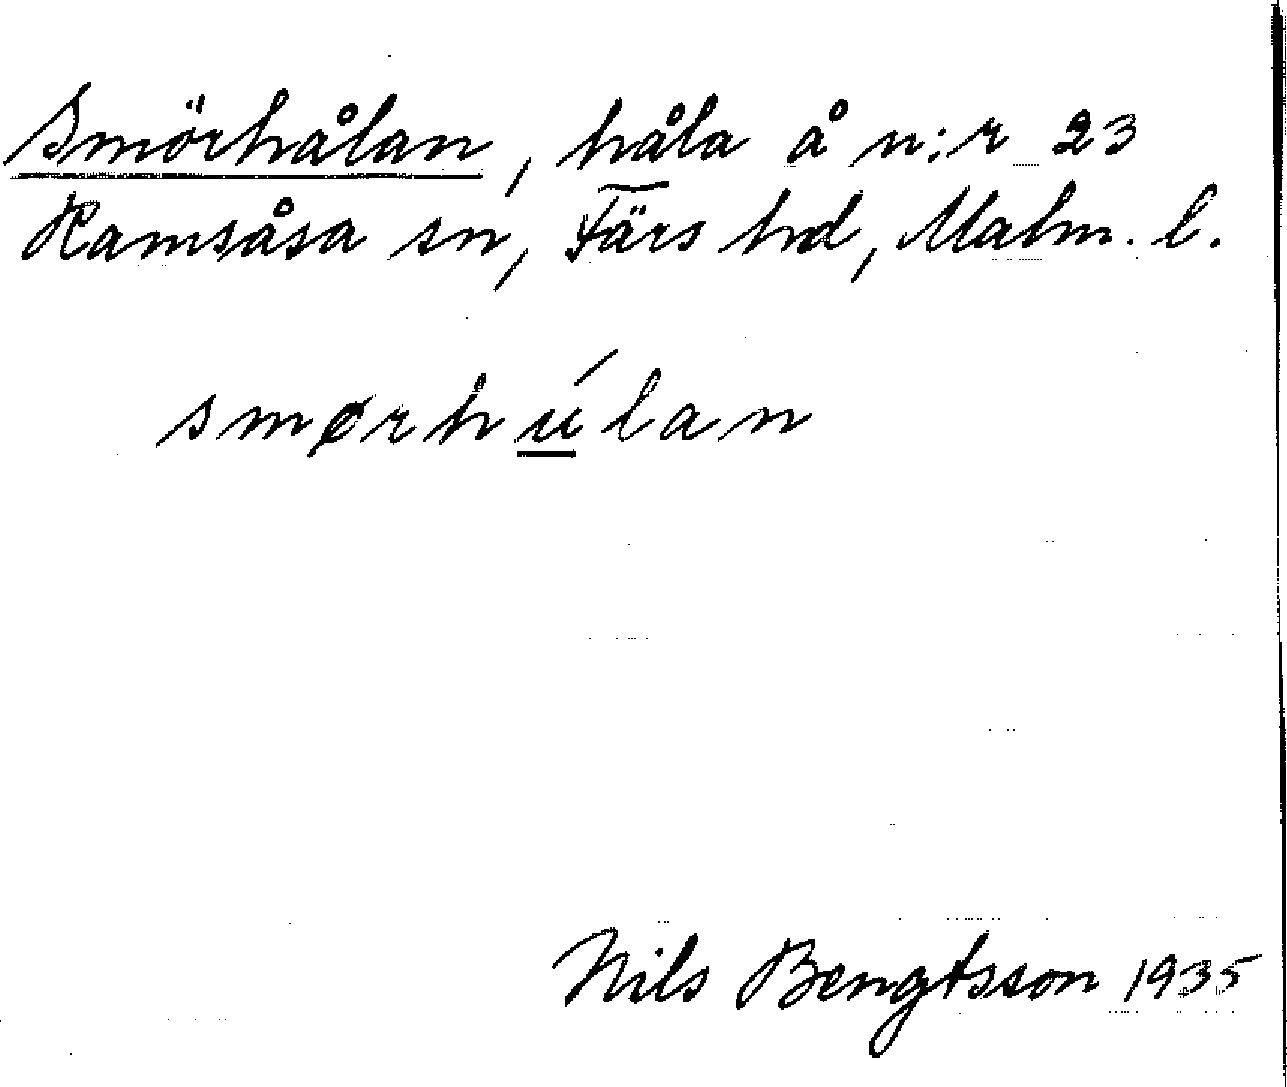 Smörhålan, håla å n:r 23
Ramsåsa sn, Färs hd, Malm. l.
smørhúlan
Nils Bengtsson 1935